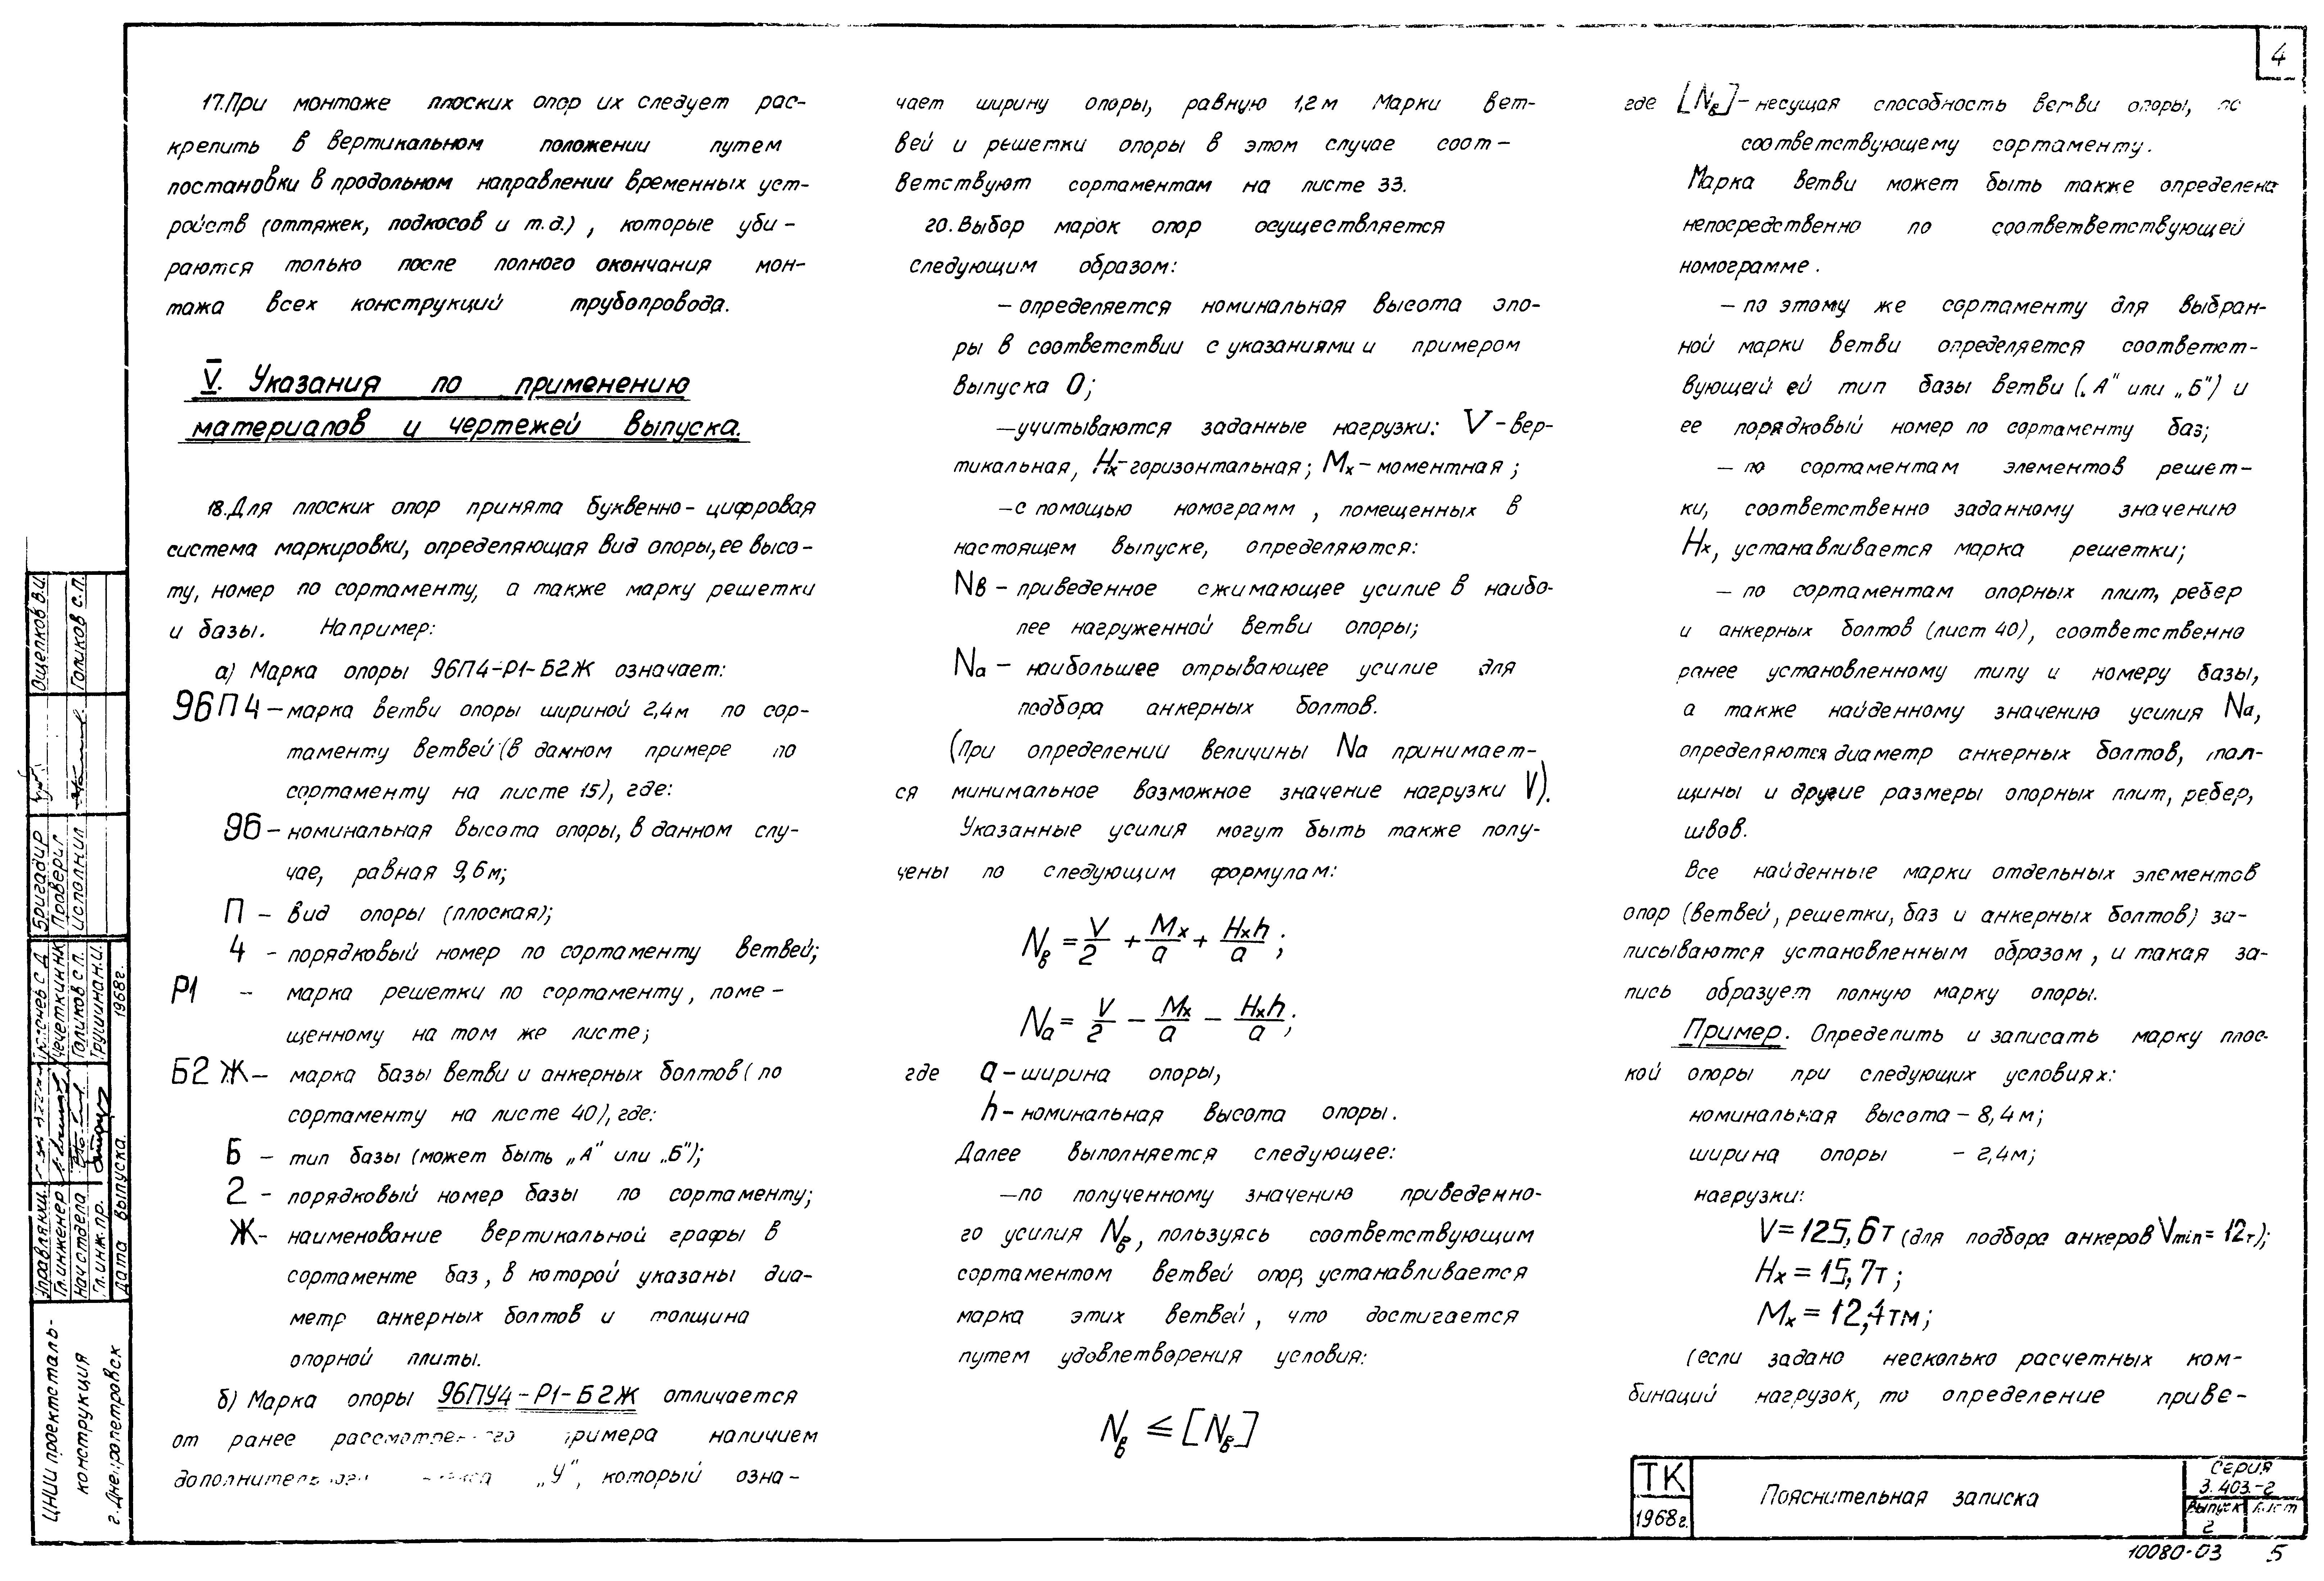 4
17.При монтаже плоских опор их следует рас-
крепить в вертикальном положении путем
постановки в продольном направлении временных уст-
ройств (оттяжек, подкосов и т.д.), которые уби-
раются только после полного окончания мон-
тажа всех конструкций трубопровода.
V. Указания по применению
материалов и чертежей выпуска.
18.Для плоских опор принята буквенно-цифровая
система маркировки, определяющая вид опоры, ее высо-
ту, номер по сортаменту, а также марку решетки
и базы. Например:
а) Марка опоры 96П4-Р1-Б2Ж означает:
96П4 - марка ветви опоры шириной 2,4м по сор-
таменту ветвей (в данном примере по
сортаменту на листе 15), где:
96 - номинальная высота опоры, в данном слу-
чае, равная 9,6м;
П - вид опоры (плоская);
4 - порядковый номер по сортаменту ветвей;
Р1 - марка решетки по сортаменту, поме-
щенному на том же листе;
Б2Ж - марка базы ветви и анкерных болтов (по
сортаменту на листе 40), где:
Б - тип базы (может быть „А" или „Б");
2 - порядковый номер базы по сортаменту;
Ж - наименование вертикальной графы в
сортаменте баз, в которой указаны диа-
метр анкерных болтов и толщина
опорной плиты.
б) Марка опоры 96ПУ4-Р1-Б2Ж отличается
от ранее рассмотренного примера наличием
дополнительного „У", который озна-
чает ширину опоры, равную 1,2м Марки вет-
вей и решетки опоры в этом случае соот-
ветствуют сортаментам на листе 33.
20. Выбор марок опор осуществляется
следующим образом:
- определяется номинальная высота опо-
ры в соответствии с указаниями и примером
выпуска 0;
- учитываются заданные нагрузки: V - вер-
тикальная, Hх - горизонтальная; Mх - моментная;
- с помощью номограмм, помещенных в
настоящем выпуске, определяются:
Nв - приведенное сжимающее усилие в наибо-
лее нагруженной ветви опоры;
Nа - наибольшее отрывающее усилие для
подбора анкерных болтов.
(При определении величины Nа принимает-
ся минимальное возможное значение нагрузки V).
Указанные усилия могут быть также полу-
чены по следующим формулам:
Nв = V/2 + Mх/a + Hхh/a;
Nа = V/2 - Mх/a - Hхh/a;
где a - ширина опоры,
h - номинальная высота опоры.
Далее выполняется следующее:
- по полученному значению приведенно-
го усилия Nв, пользуясь соответствующим
сортаментом ветвей опор, устанавливается
марка этих ветвей, что достигается
путем удовлетворения условия:
Nв ≤ [Nв]
где [Nв] - несущая способность ветви опоры, по
соответствующему сортаменту.
Марка ветви может быть также определена
непосредственно по соответветствующей
номограмме.
- по этому же сортаменту для выбран-
ной марки ветви определяется соответст-
вующей ей тип базы ветви („А" или „Б") и
ее порядковый номер по сортаменту баз;
- по сортаментам элементов решет-
ки, соответственно заданному значению
Hх, устанавливается марка решетки;
- по сортаментам опорных плит, ребер
и анкерных болтов (лист 40), соответственно
ранее установленному типу и номеру базы,
а также найденному значению усилия Nа,
определяются диаметр анкерных болтов, тол-
щины и другие размеры опорных плит, ребер,
швов.
Все найденные марки отдельных элементов
опор (ветвей, решетки, баз и анкерных болтов) за-
писываются установленным образом, и такая за-
пись образует полную марку опоры.
Пример. Определить и записать марку плос-
кой опоры при следующих условиях:
номинальная высота - 8,4м;
ширина опоры - 2,4м;
нагрузки:
V = 125,6т (для подбора анкеров Vmin = 12т);
Hх = 15,7т;
Mх = 12,4тм;
(если задано несколько расчетных ком-
бинаций нагрузок, то определение приве-
ТК
1968г.
Пояснительная записка
Серия
3.403-2
Выпуск Лист
2
10080-03 5
Ощепков В.И.
Голиков С.П.
Бригадир
Проверил
Исполнил
Чечеткин Н.К.
Голиков С.П.
Трушина Н.И.
1968г.
Управляющ.
Гл.инженер
Нач.отдела
Гл.инж.пр.
Дата выпуска.
ЦНИИпроектсталь-
конструкция
г.Днепропетровск